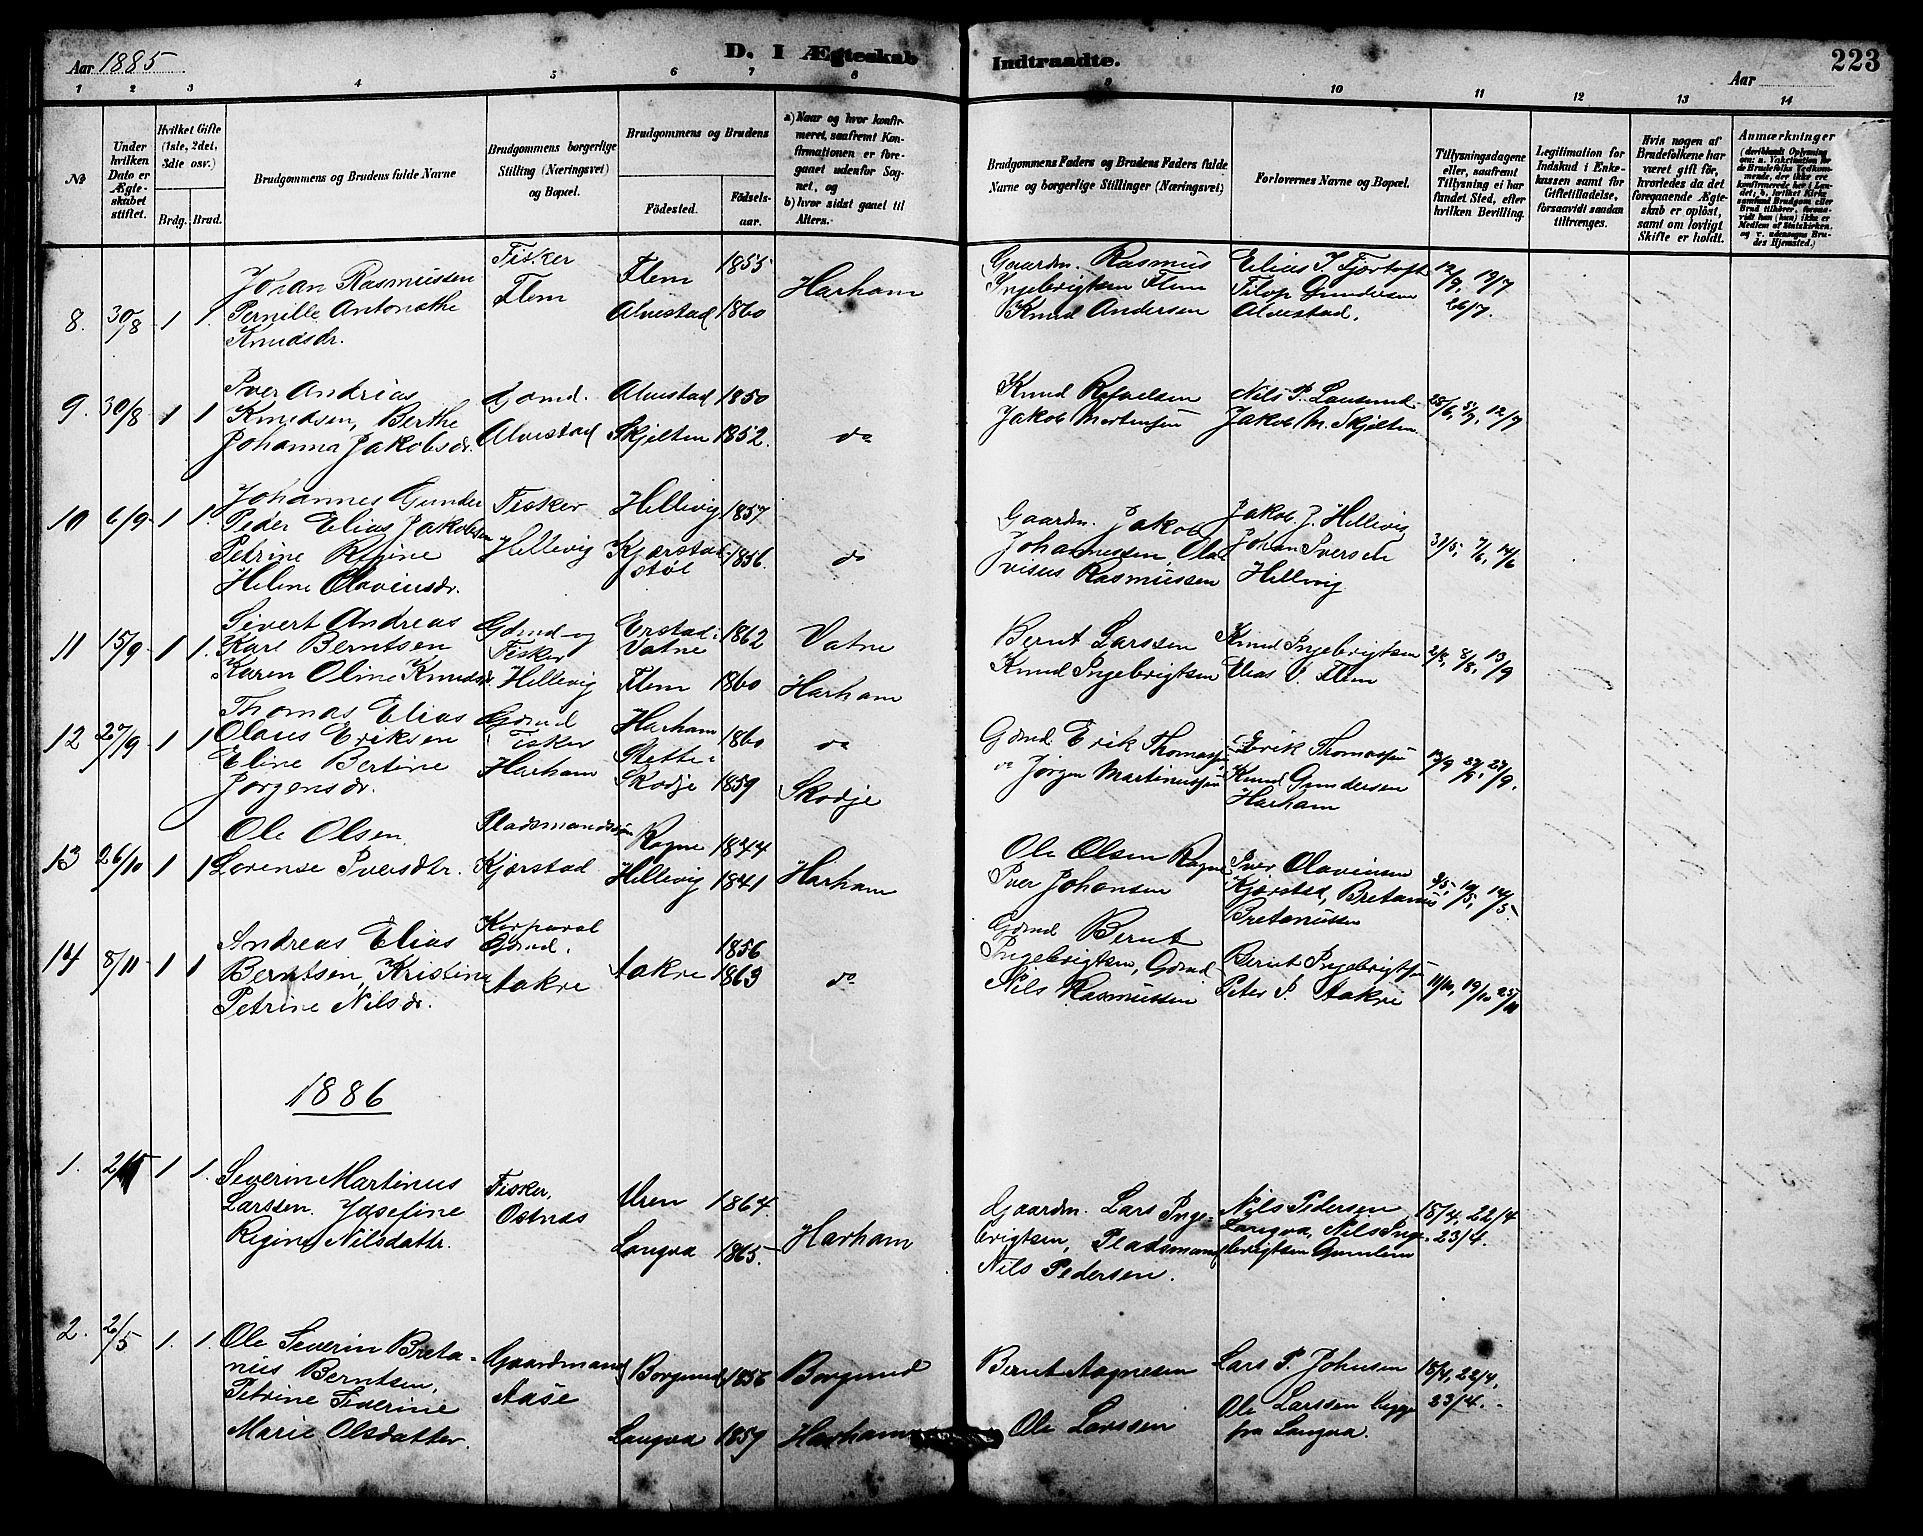 223
Aar 1885
D. I Ægteskab Indtraadte.
Aar
1 2 3 4 5 6 7 8 9 10 11 12 13 14
No
Under hvilken Dato er Ægteskabet stiftet.
Hvilket Gifte (1ste, 2det, 3die osv.)
Brdg. Brud.
Brudgommens og Brudens fulde Navne
Brudgommens borgerlige Stilling (Næringsvei) og Bopæl.
Brudgommens og Brudens
Fødested.
Fødselsaar.
a) Naar og hvor konfirmeret, saafremt Konfirmationen er foregaaet udenfor Sognet, og
b) hvor sidst gaaet til Alters.
Brudgommens Faders og Brudens Faders fulde Navne og borgerlige Stillinger (Næringsvei)
Forlovernes Navne og Bopæl.
Tillysningsdagene eller, saafremt Tillysning ei har fundet Sted, efter hvilken Bevilling.
Legitimation for Indskud i Enkekassen samt for Giftetilladelse, forsaavidt saadan tiltrænges.
Hvis nogen af Brudefolkene har været gift før, hvorledes da det foregaaende Ægteskab er opløst, samt om lovligt Skifte er holdt.
Anmærkninger
8. 30/8 1 1.
Johan Rasmussen
Pernille Antonathe
Knudsdr.
Fisker
Flem
Flem 1855
Alvestad 1860
Harham
Gaardm. Rasmus
Ingebrigtsen Flem
Knud Andersen
Elias I. Fjørtoft
Alvestad.
19/7
26/7.
9. 30/8 1 1
Iver Andreas
Knudsen, Berthe
Johanna Jakobsdr.
Gdmd.
Alvestad
Alvestad 1850
Skjelten 1852.
do
Knud Rafaelsen
Jakob Mortensen
Nils P.
Jakob M. Skjelten
12/7
10 6/9 1 1.
Johannes Gunder
Peder Elias Jakobsen
Petrine Regine
Helene Olaviusdr.
Fisker
Hellevig
Hellevig 1857
Kjærstad-
støl 1856.
do
Gaardm. Jakob
Johannessen, Ola
vius Rasmussen
Jakob. J. Hellevig
Johan Iversen
Hellevig
31/5, 7/6, 14/6
11 15/9 1 1.
Sivert Andreas
Karl Berntsen
Karen Oline Knudsdr
Gdmd og
Fisker
Hellevig
Erstad i
Vatne 1862
Flem 1860
Vatne
Harham
Bernt Larssen
Knud Ingebrigtsen
Knud Ingebrigtsen
Elias V. Flem
2/8, 8/8, 13/9
12 27/9 1 1
Thomas Elias
Olaus Eriksen
Eline Bertine
Jørgensdr.
Gdmd
Fisker
Harham
Harham 1860
Stette i
Skodje 1859
do
Skodje
Gdmd. Erik Thomassen
do Jørgen Martinussen
Erik Thomassen
Knud Gundersen
Harham
13 26/10 1 1
Ole Olsen
Lorense Iversdtr.
Pladsmandssøn
Kjærstad
Rogne 1844
Hellevig 1841
Harham
Ole Olsen Rogne
Iver Johansen
Iver Olaviusen
Kjærstad, Bretanus
Bretanussen
14 8/11 1 1
Andreas Elias
Berntsen, Kristine
Petrine Nilsdr.
Korporal
Gdmd.
Aakre
Aakre 1856
1863
do
Gdmd Bernt
Ingebrigtsen, Gdmd
Nils Rasmussen
Bernt Ingebrigtsen
Peter P. Aakre
11/10, 19/10 25/10
1886
1. 2/5 1 1.
Severin Martinus
Larssen. Josefine
Regine Nilsdattr.
Fisker,
Ostnes
Uren 1864
Langva 1865
Harham
Gaardm. Lars Inge-
brigtsen, Pladsmand
Nils Pedersen.
Nils Pedersen
Langva, Nils Inge-
brigtsen Gamlem
18/4, 22/4
23/4.
2. 2/5 1. 1.
Ole Severin Breta-
nus Berntsen,
Petrine Severine
Marie Olsdatter.
Gaardmand
Aase
Borgund 1856
Langva 1857
Borgund
Harham
Bernt Aagnesen
Ole Larssen
Lars P. Johnsen
Ole Larssen begge
fra Langva.
18/4, 22/4,
23/4.